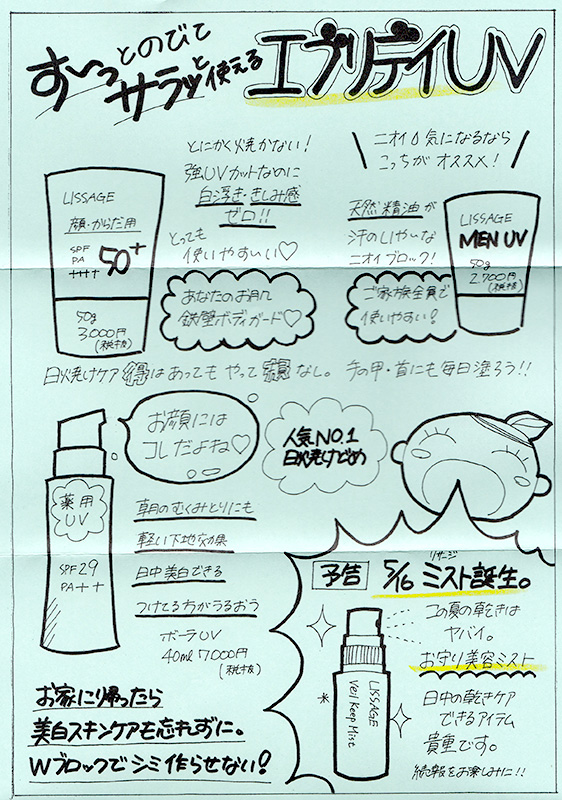 すーっとのびて
サラッと使える
エブリデイUV
とにかく焼かない！
強UVカットなのに
白浮き・きしみ感
ゼロ!!
とっても
使いやすい♡
LISSAGE
顔・からだ用
SPF
PA
++++
50+
50g
3,000円
(税抜)
あなたのお肌
鉄壁ボディガード♡
ニオイも気になるなら
こっちがオススメ！
天然精油が
汗のしやいな
ニオイブロック！
LISSAGE
MEN UV
50g
2,700円
(税抜)
ご家族全員で
使いやすい！
日焼けケア得はあってもやって損なし。手の甲・首にも毎日塗ろう!!
お顔には
コレだよね♡
人気NO.1
日焼けどめ
薬用
UV
SPF29
PA++
朝のむくみとりにも
軽い下地効果
日中美白できる
つけてる方がうるおう
ボーラUV
40ml 7,000円
(税抜)
お家に帰ったら
美白スキンケアも忘れずに。
Wブロックでシミ作らせない！
予告 5/16 ミスト誕生。
リサージ
この夏の乾きは
ヤバイ。
お守り美容ミスト
LISSAGE
Veil Keep Mist
日中の乾きケア
できるアイテム
貴重です。
続報をお楽しみに!!